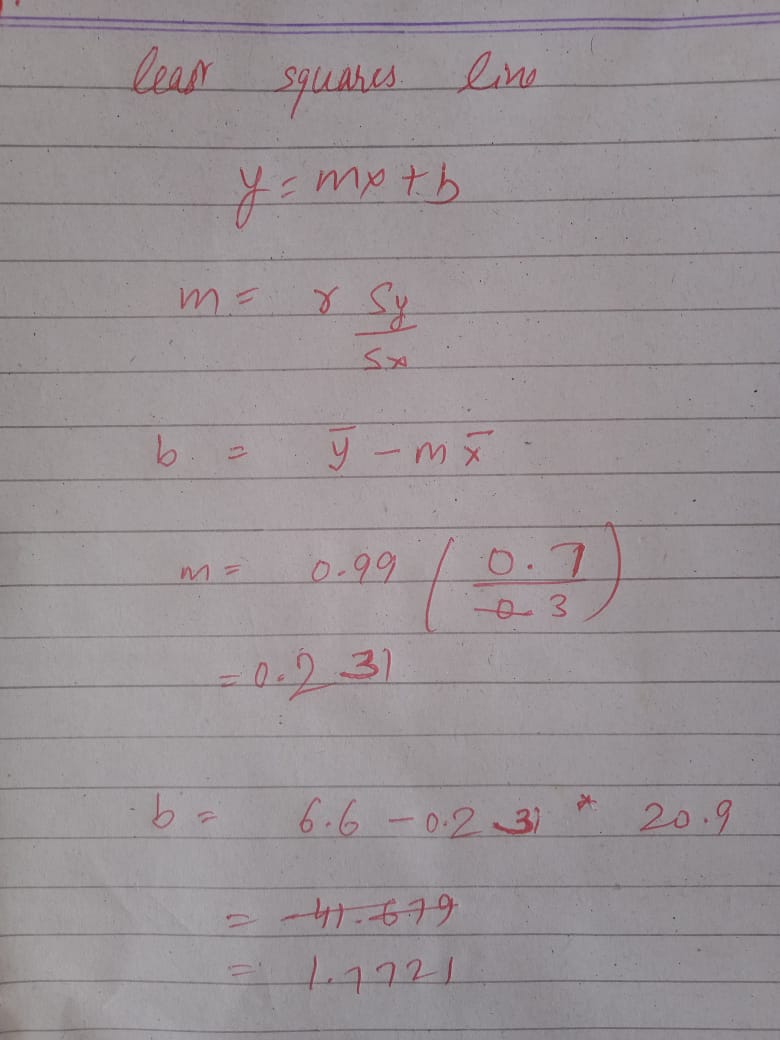 least squares line
y = mx + b
m = r Sy
Sx
b = ȳ - m x̄
m = 0.99 ( 0.7
3 )
= 0.231
b = 6.6 - 0.231 * 20.9
= 41.679
= 1.7721